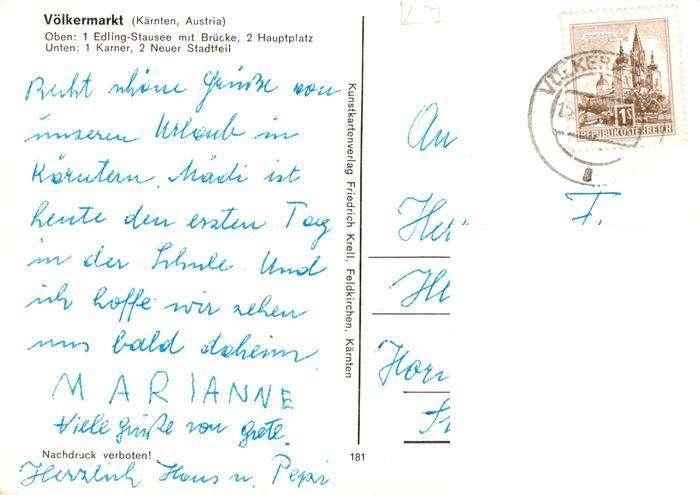 Völkermarkt (Kärnten, Austria)
Oben: 1 Edling-Stausee mit Brücke, 2 Hauptplatz
Unten: 1 Karner, 2 Neuer Stadtteil
Recht schöne Grüße von
unseren Urlaub in
Kärntern. Mädi ist
heute den ersten Tag
in der Schule. Und
ich hoffe wir sehen
uns bald daheim.
MARIANNE
Viele grüße von Grete.
Herzlich Hans u. Pepi
Nachdruck verboten!
181
Kunstkartenverlag Friedrich Krell, Feldkirchen, Kärnten
K7
VÖLKER
15
a
1S
REPUBLIK ÖSTERREICH
An
F.